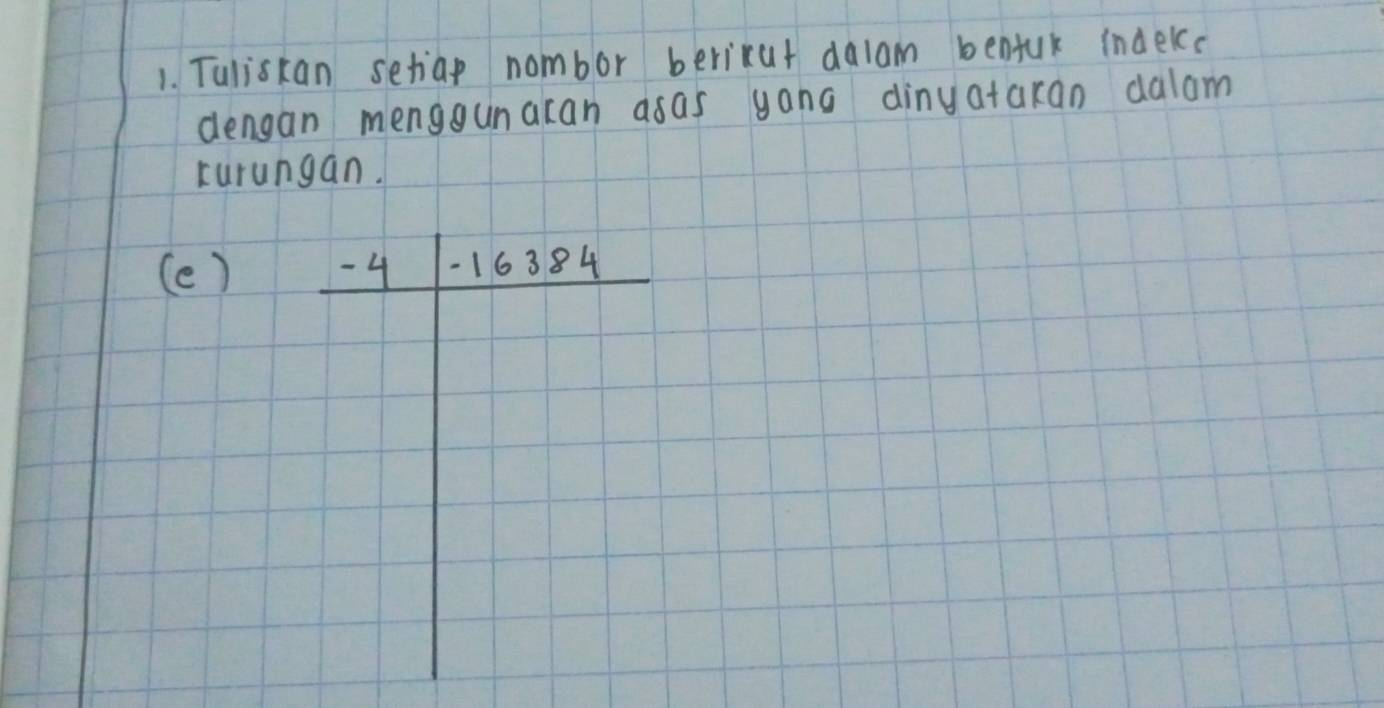 1. Tuliskan setiap nombor berikut dalam bentuk indeks
dengan menggunakan asas yang dinyatakan dalam
kurungan.
(e) -4 | -16384